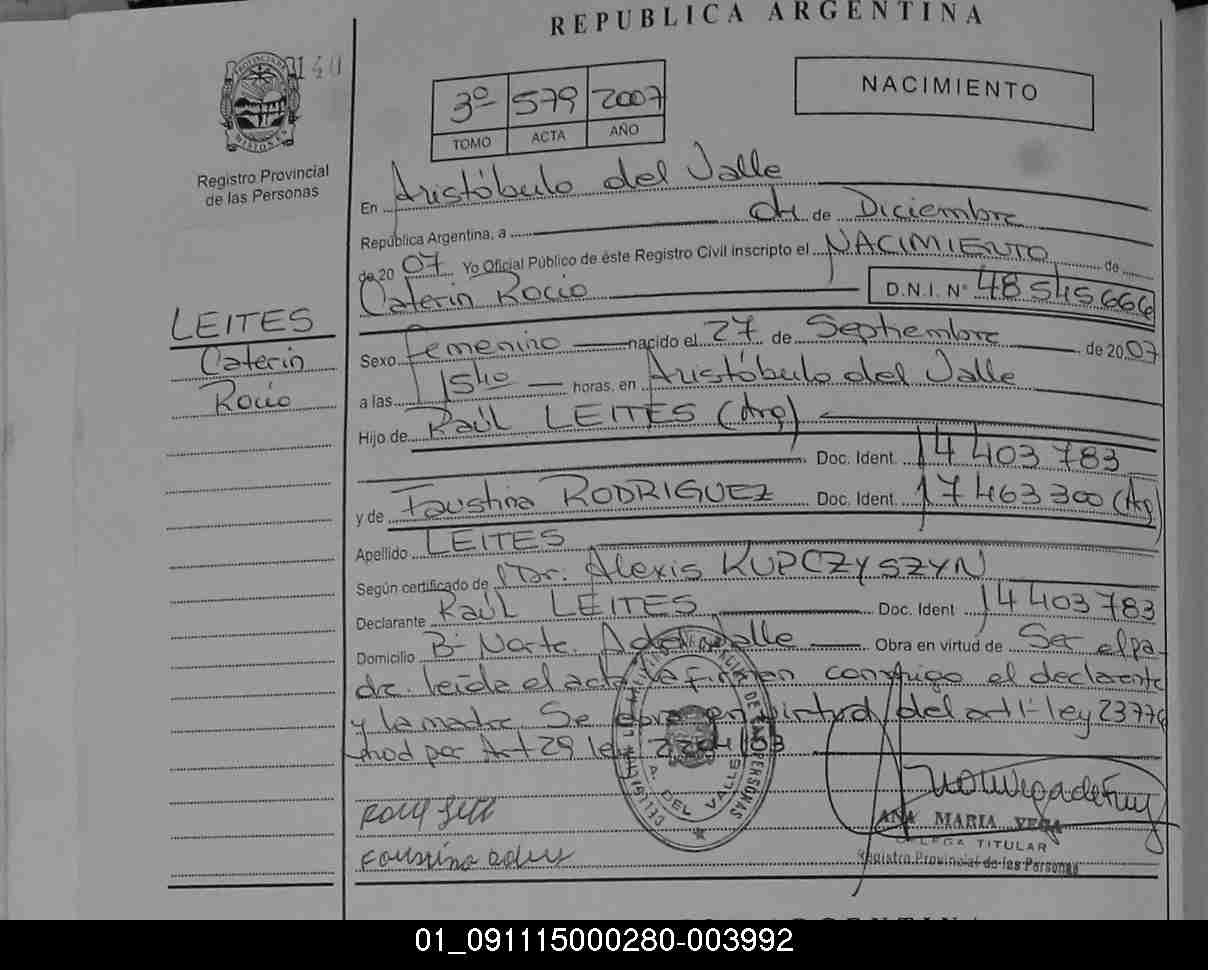 REPUBLICA ARGENTINA
140
PROVINCIA DE MISIONES
Registro Provincial
de las Personas
3º 579 2007
TOMO ACTA AÑO
NACIMIENTO
En Aristóbulo del Valle
República Argentina, a 04 de Diciembre
de 20 07 Yo Oficial Público de éste Registro Civil inscripto el NACIMIENTO de
Caterin Rocio D.N.I. Nº 48 545 666
LEITES
Caterin
Rocio
Sexo Femenino nacido el 27 de Septiembre de 20 07
a las 15 40 horas, en Aristóbulo del Valle
Hijo de Raúl LEITES (Arg)
Doc. Ident. 14 403 783
y de Faustina RODRIGUEZ Doc. Ident. 17 463 300 (Arg)
Apellido LEITES
Según certificado de Dr. Alexis KUPCZYSZYN
Declarante Raúl LEITES Doc. Ident 14 403 783
Domicilio Bº Norte. A del Valle Obra en virtud de Ser el pa-
dre. leída el acta la firman conmigo el declarante
y la madre. Se obra en virtud del art 1- ley 23776
mod por Art 29 ley
ANA MARIA VEGA
TITULAR
Registro Provincial de las Personas
DEL VALLE
01_091115000280-003992